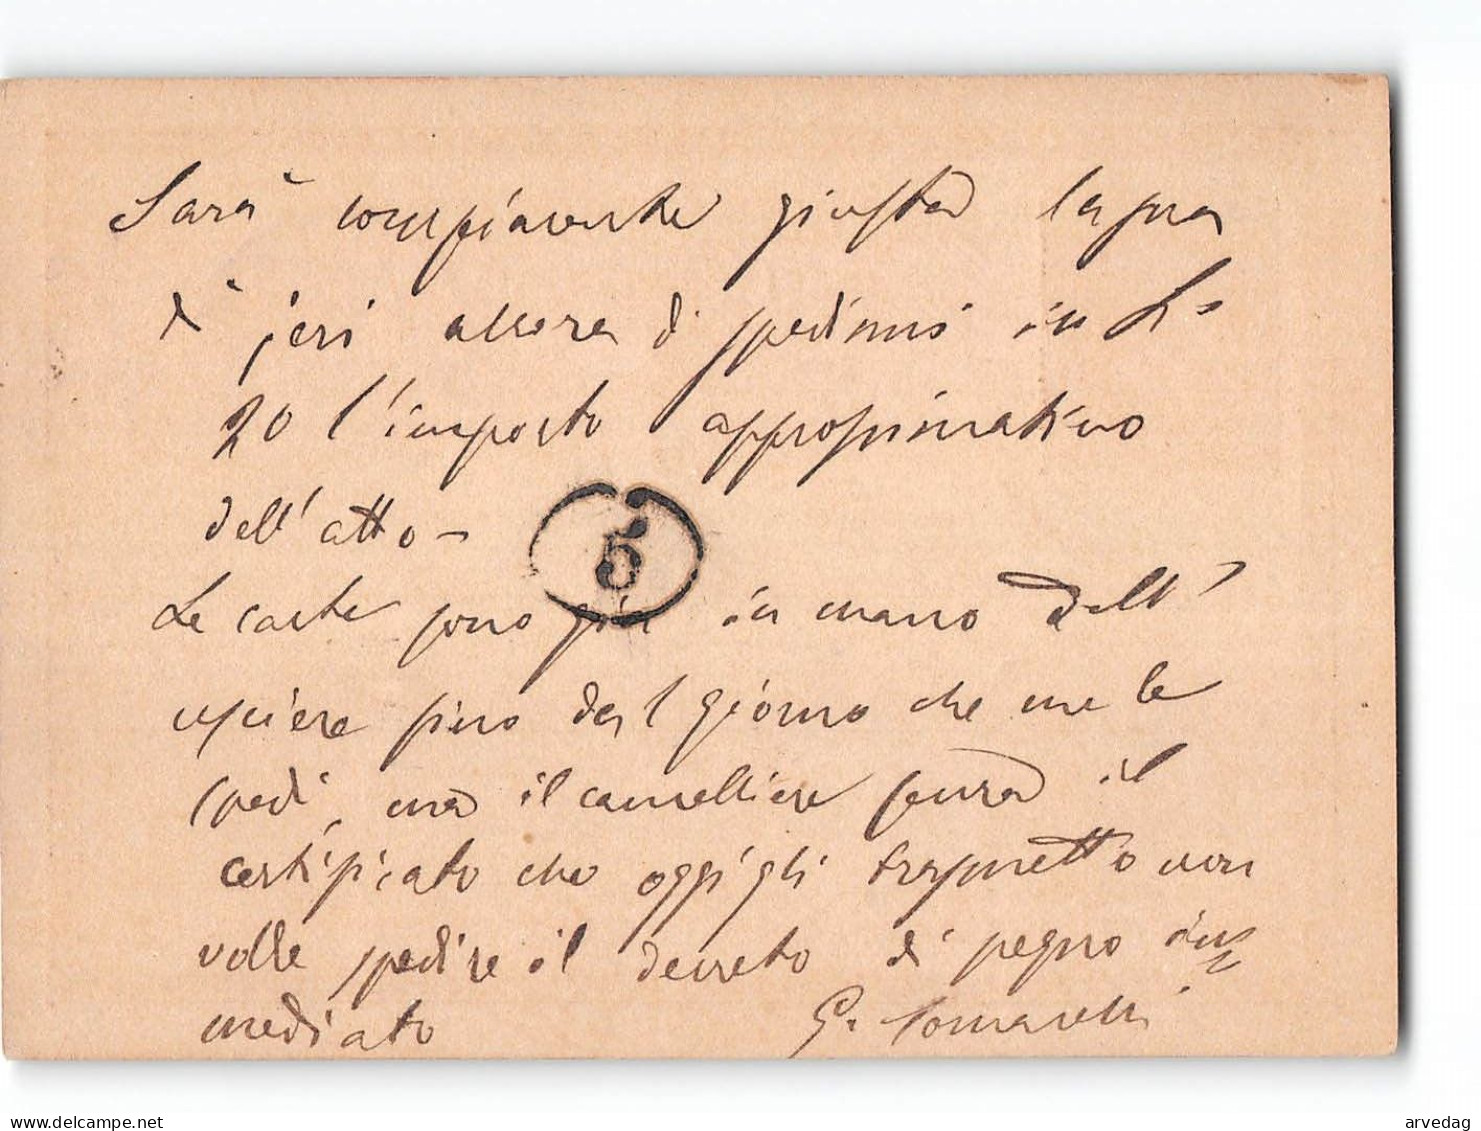 Sarà compiacente giusta la sua
di jeri allora di spedirmi in L.
20 l'importo approssimativo
dell'atto -
5
Le carte sono già in mano dell'
usciere fino dal giorno che me le
spedì, ma il cancelliere senza il
certificato che oggi gli trasmetto non
volle spedire il decreto di pegno im=
mediato
G. Tomarelli
arvedag
delcampe.net